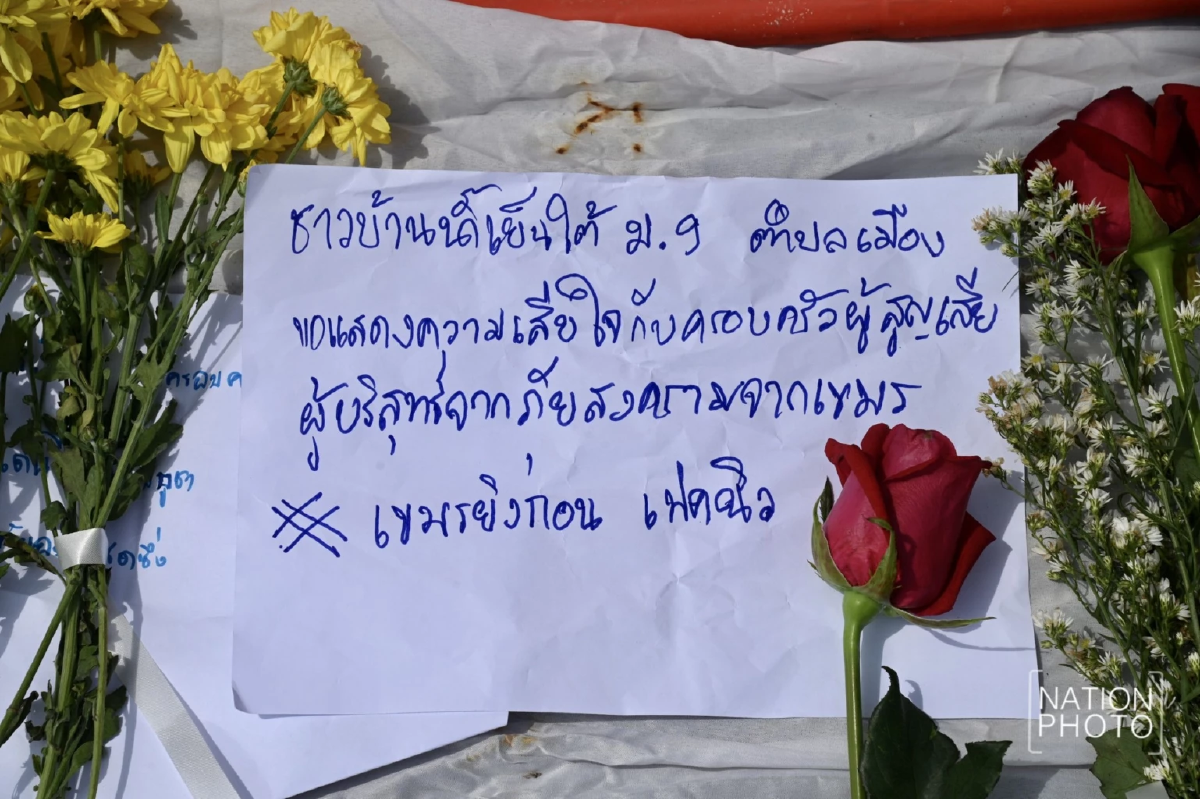 ชาวบ้านน้ำเย็นใต้ ม.9 ตำบลเมือง
ขอแสดงความเสียใจกับครอบครัวผู้สูญเสีย
ผู้บริสุทธิ์จากภัยสงครามจากเขมร
เขมรยิงก่อน เฟคนิว
ครอบค
NATION
PHOTO